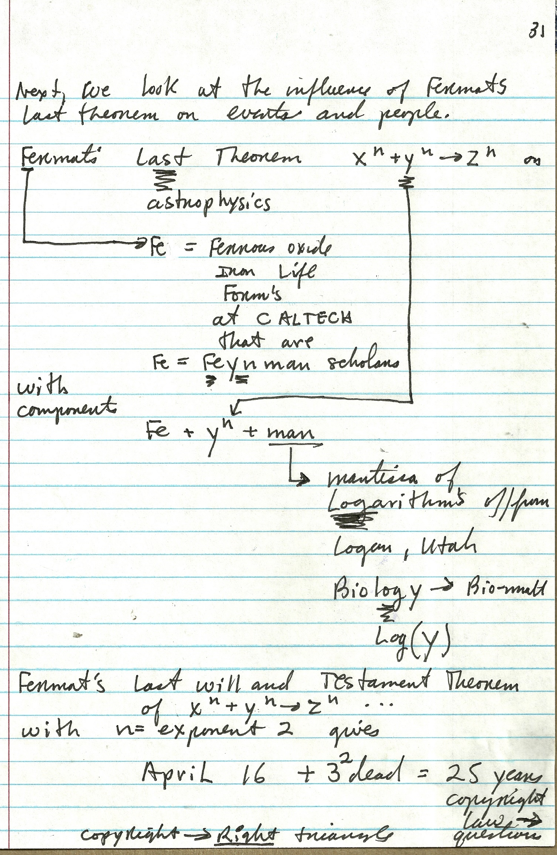 31
Next, we look at the influence of Fermats
last theorem on events and people.
Fermats Last Theorem xⁿ + yⁿ → zⁿ on
astrophysics
Fe = Ferrous oxide
Iron Life
Form's
at CALTECH
that are
Fe = Feynman scholars
with
components
Fe + yⁿ + man
mantissa of
Logarithm's off/from
Logan, Utah
Biology → Bio-mult
Log(y)
Fermat's Last will and Testament Theorem
of xⁿ + yⁿ → zⁿ ...
with n = exponent 2 gives
April 16 + 3² dead = 25 years
copyright
laws →
copyright → Right triangle question